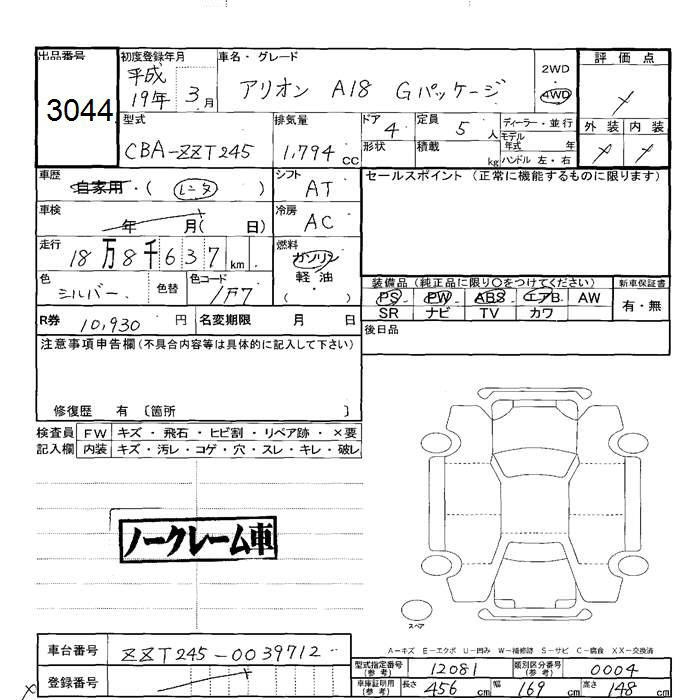 出品番号
3044
初度登録年月
平成
19年 3月
車名・グレード
アリオン A18 Gパッケージ
2WD
4WD
評価点
型式
CBA-ZZT245
排気量
1,794 cc
ドア
4
形状
定員
5 人
積載
kg
ディーラー・並行
モデル
年式 年
ハンドル 左・右
外装 内装
車歴
自家用・(レンタ)
シフト
AT
セールスポイント(正常に機能するものに限ります)
車検
年 月( 日)
冷房
AC
走行
18万8千637 km
燃料
ガソリン
軽油
( )
色
シルバー
色替
色コード
1F7
装備品(純正品に限り〇をつけてください)
PS PW ABS エアB AW
SR ナビ TV カワ
新車保証書
有・無
R券 10,930 円
名変期限 月 日
後日品
注意事項申告欄(不具合内容等は具体的に記入して下さい)
修復歴 有 〔箇所 〕
検査員
記入欄
FW キズ・飛石・ヒビ割・リペア跡・×要
内装 キズ・汚レ・コゲ・穴・スレ・キレ・破レ
ノークレーム車
スペア
A-キズ E-エクボ U-凹み W-補修跡 S-サビ C-腐食 XX-交換済
車台番号
ZZT245-0039712
登録番号
型式指定番号
(参考)
12081
類別区分番号
(参考)
0004
車庫証明用
(参考)
長さ 456 cm 幅 169 cm 高さ 148 cm